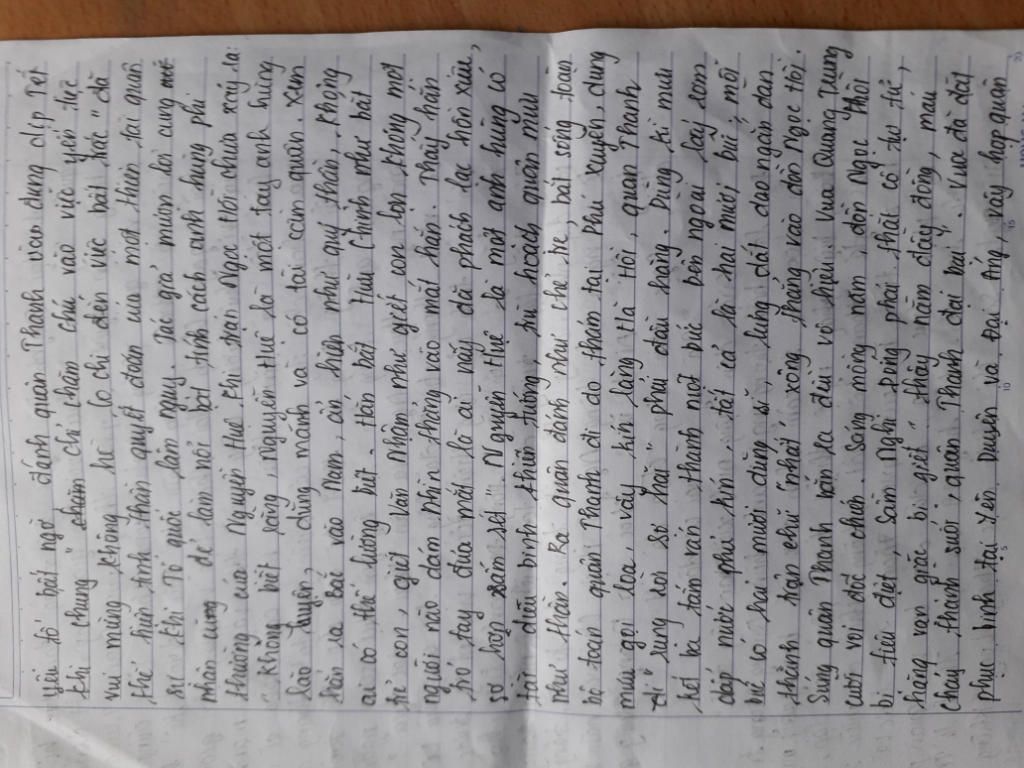 yếu tố bất ngờ đánh quân Thanh vào đúng dịp Tết
khi chúng "chăm chỉ chăm chú vào việc yến tiệc
vui mừng không hề lo chi đến việc bất trắc" đã
thể hiện tinh thần quyết đoán của một thiên tài quân
sự khi Tổ quốc lâm nguy. Tác giả muốn lời cung
nhân để làm nổi bật tính cách anh hùng phi
thường của Nguyễn Huệ khi trận Ngọc Hồi chưa xảy ra:
"Không biết rằng, Nguyễn Huệ là một tay anh hùng
lão luyện, dũng mãnh và có tài cầm quân. Xem
hắn ra Bắc vào Nam, ẩn hiện như quỷ thần, không
ai có thể lường biết. Hắn bắt Hữu Chỉnh như bắt
trẻ con, giết Văn Nhậm như giết con lợn, không một
người nào dám nhìn thẳng vào mặt hắn. Thấy hắn
trỏ tay đưa mắt là ai nấy đã phách lạc hồn xiêu,
sợ hơn sấm sét". Nguyễn Huệ là một anh hùng có
tài điều binh khiển tướng, trù hoạch quân mưu
như thần. Ra quân đánh như chẻ tre, bắt sống toàn
bộ toán quân Thanh đi do thám tại Phú Xuyên, dùng
mưu gọi loa, vây kín làng Hà Hồi, quân Thanh
"rụng rời sợ hãi" phải đầu hàng. Dùng kì mưu
kết ba tấm ván thành một bức bên ngoài lấy rơm
dấp nước phủ kín, tất cả là hai mươi bức, mỗi
bức có hai mươi dũng sĩ, lưng dắt dao ngắn dàn
thành trận chữ "nhất" xông thẳng vào đồn Ngọc Hồi.
Súng quân Thanh bắn ra đều vô hiệu. Vua Quang Trung
cưỡi voi đốc chiến. Sáng mồng năm, đồn Ngọc Hồi
bị tiêu diệt, Sầm Nghi Đống phải thắt cổ tự tử,
hàng vạn giặc bị giết "thây nằm đầy đồng, máu
chảy thành suối, quân Thanh đại bại". Vua đã đặt
phục binh tại Yên Duyên và Đại Áng, vây họp quân